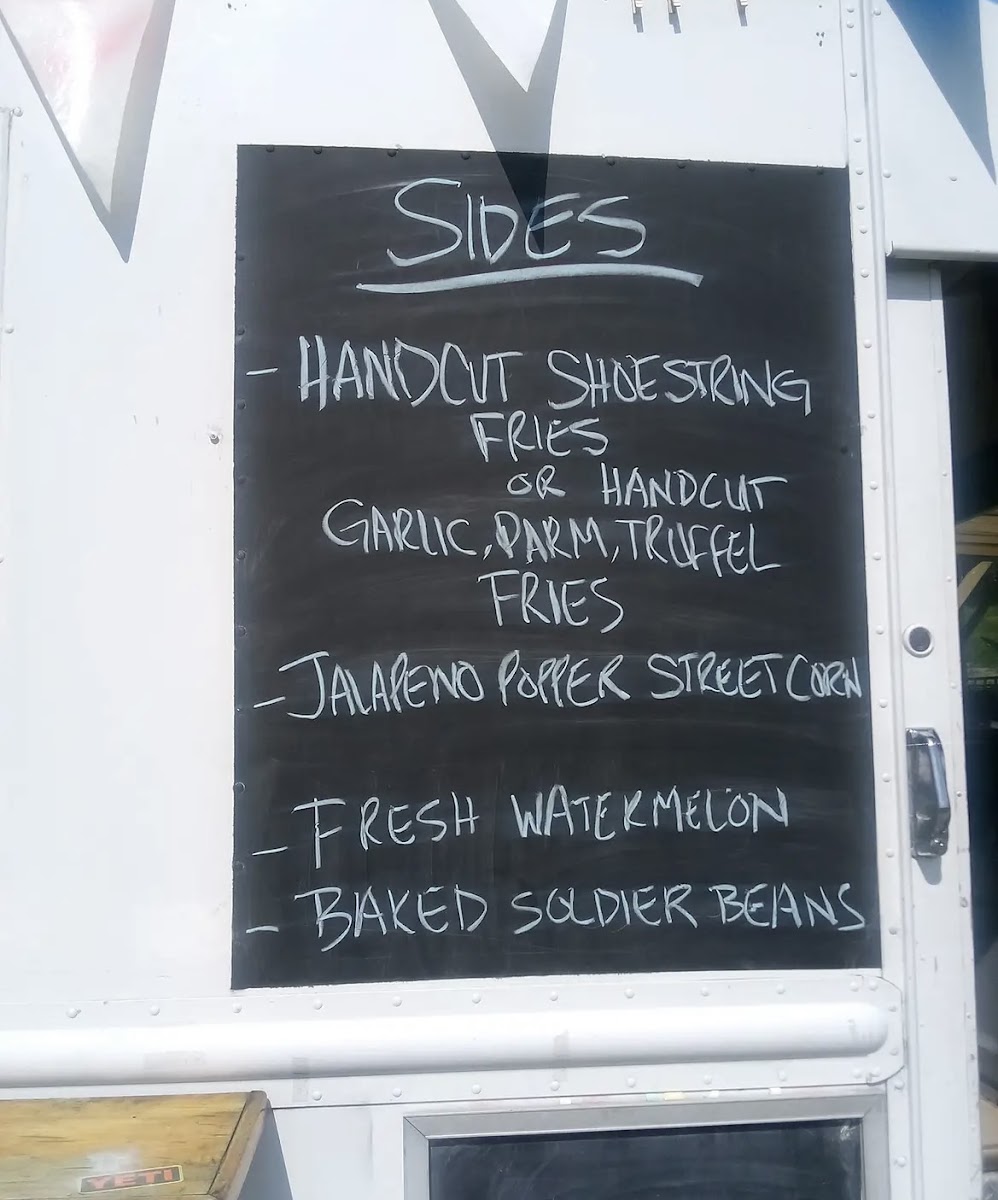 SIDES
- HANDCUT SHOESTRING
FRIES
OR HANDCUT
GARLIC, PARM, TRUFFEL
FRIES
- JALAPENO POPPER STREET CORN
- FRESH WATERMELON
- BAKED SOLDIER BEANS
YETI